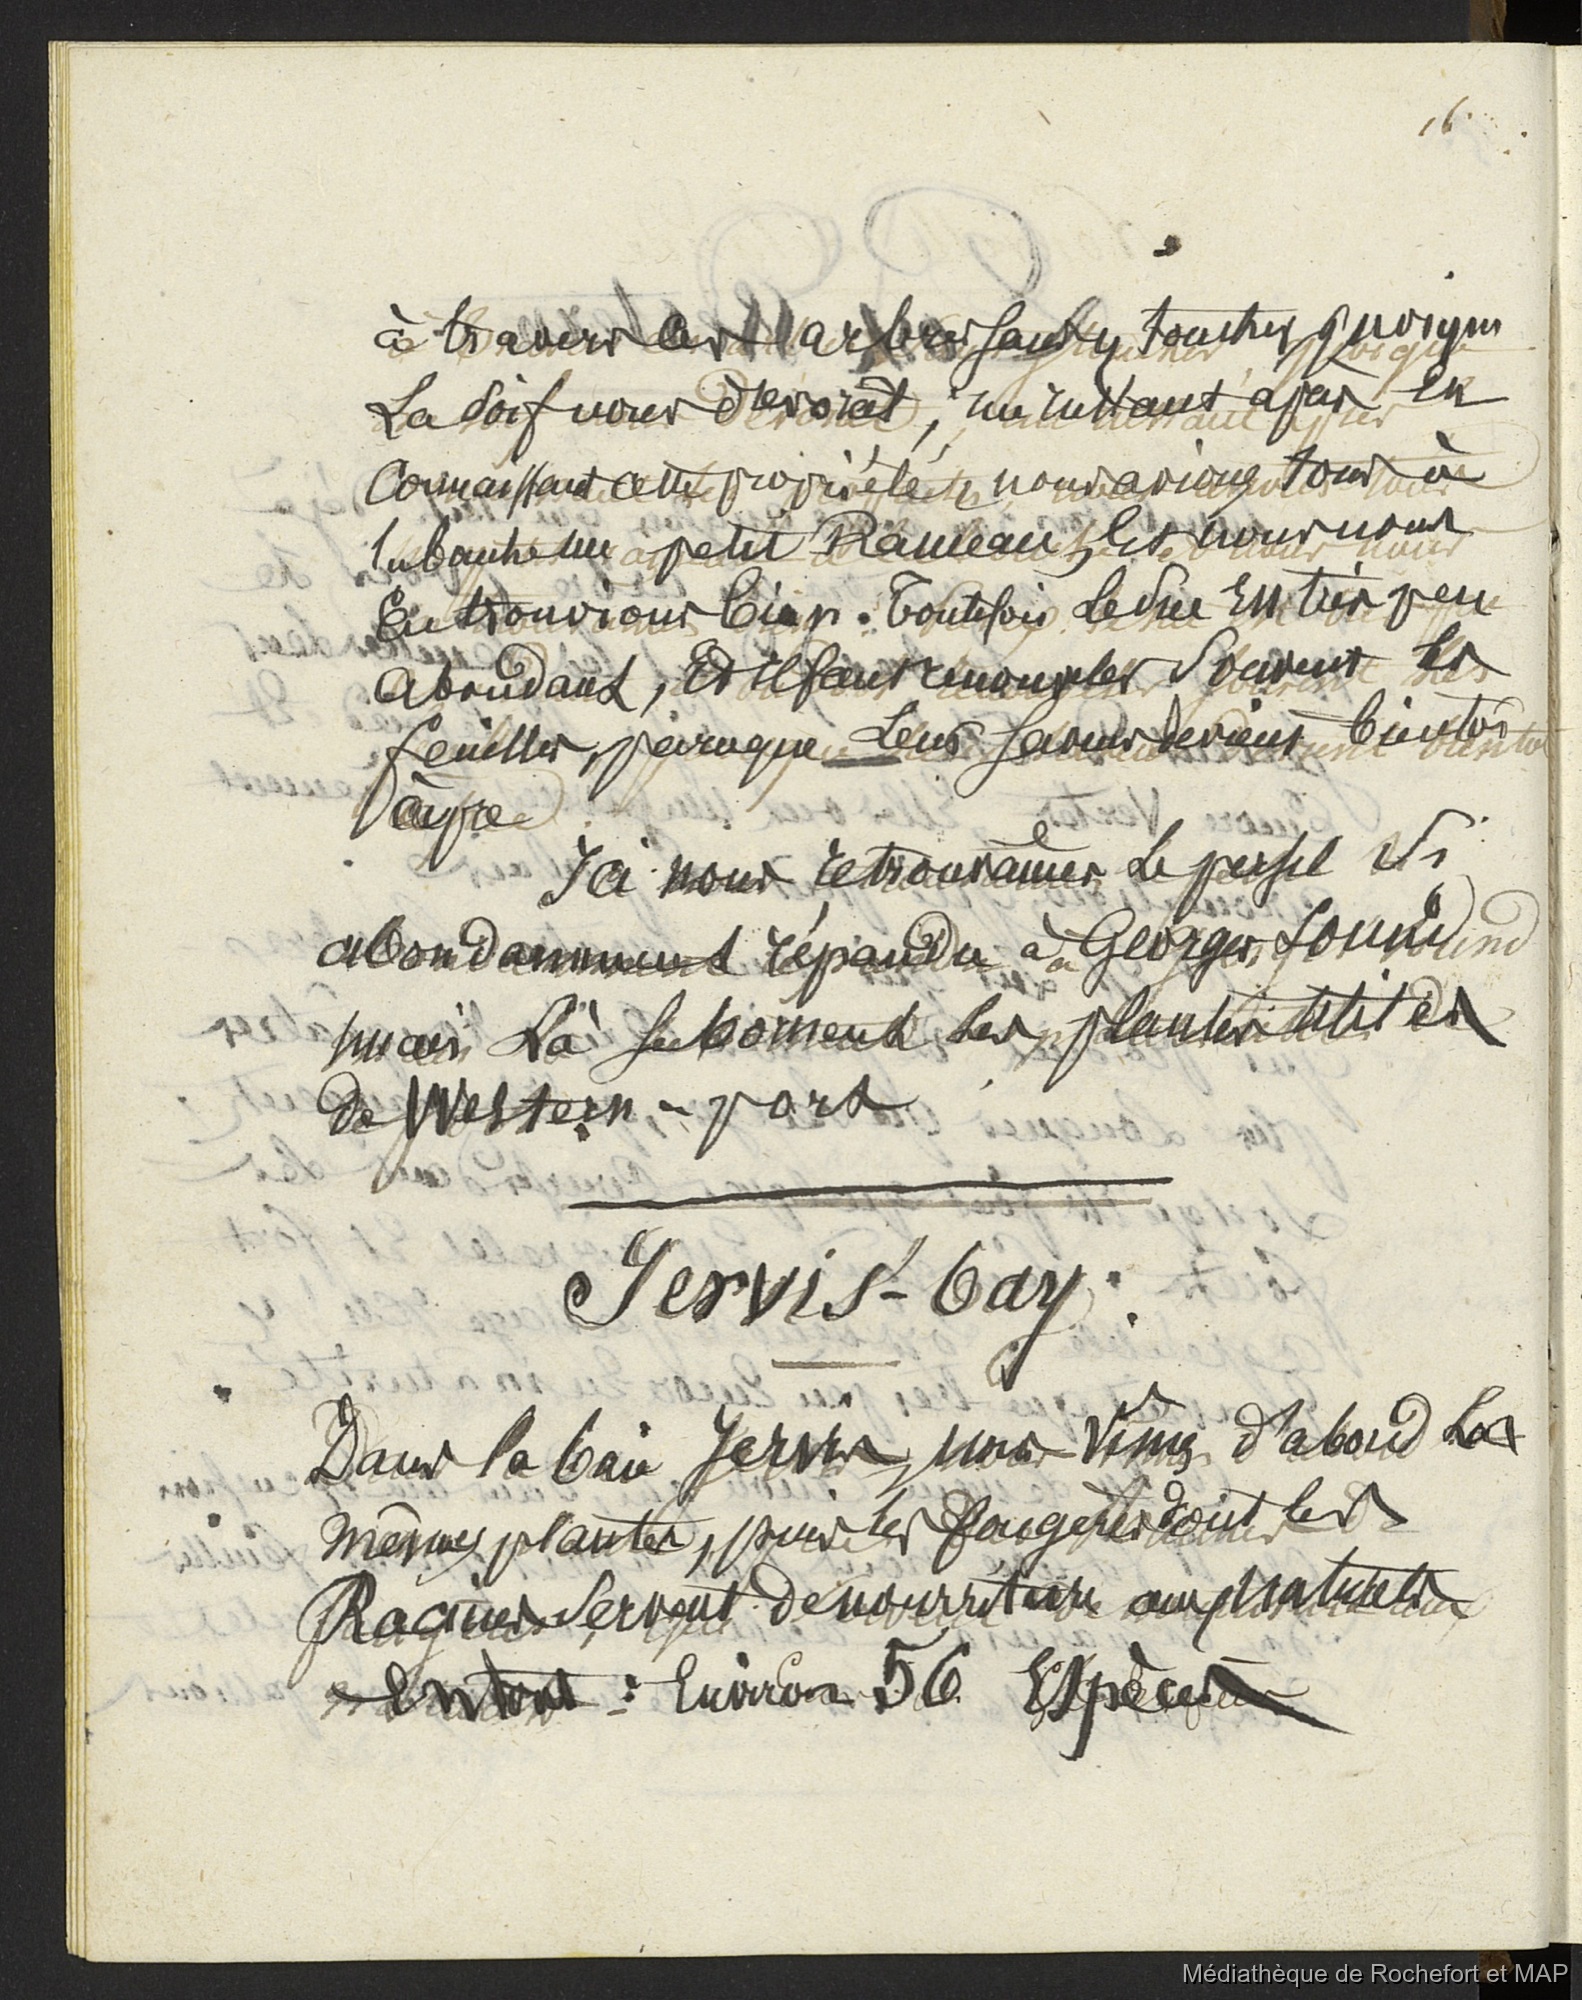 16.
à travers les arbres sans y toucher, quoique
La Soif nous dévorât ; un instant après en
Connaissant cette propriété, nous avions tous à
la bouche un petit Rameau, Et nous nous
En trouvions bien. Toutefois Le Suc En très peu
abondant, Et il faut renouveler Souvent les
feuilles, parceque Leur saveur devient bientôt
âpre
Ici nous retrouvâmes Le persil Si
abondamment répandu à Georges, Sound
mais Là se bornent les plantes utiles
de Western-port
Jervis'-bay.
Dans la baie Jervis, nous Vîmes d'abord Les
mêmes plantes, puis les fougères dont les
Racines Servent de nourriture aux naturels
En tout : Environ 56 Espèces
Médiathèque de Rochefort et MAP